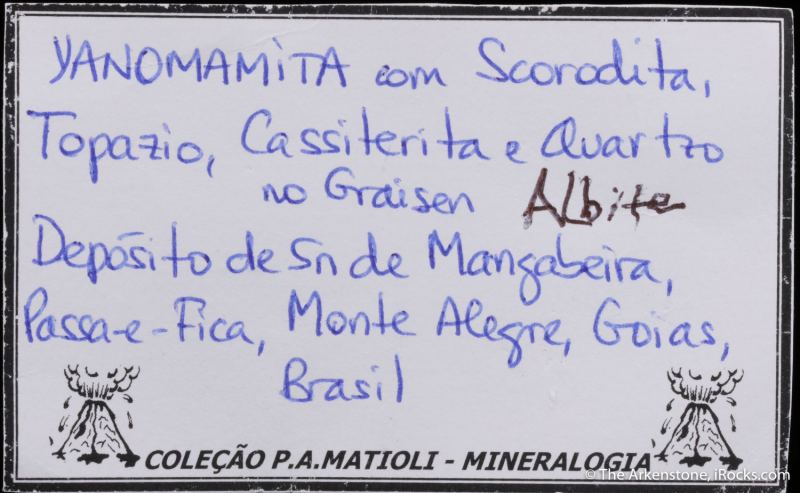 YANOMAMITA com Scorodita,
Topazio, Cassiterita e Quartzo
no Graisen Albite
Depósito de Sn de Mangabeira,
Passa-e-Fica, Monte Alegre, Goias,
Brasil
COLEÇÃO P.A.MATIOLI - MINERALOGIA
© The Arkenstone, iRocks.com